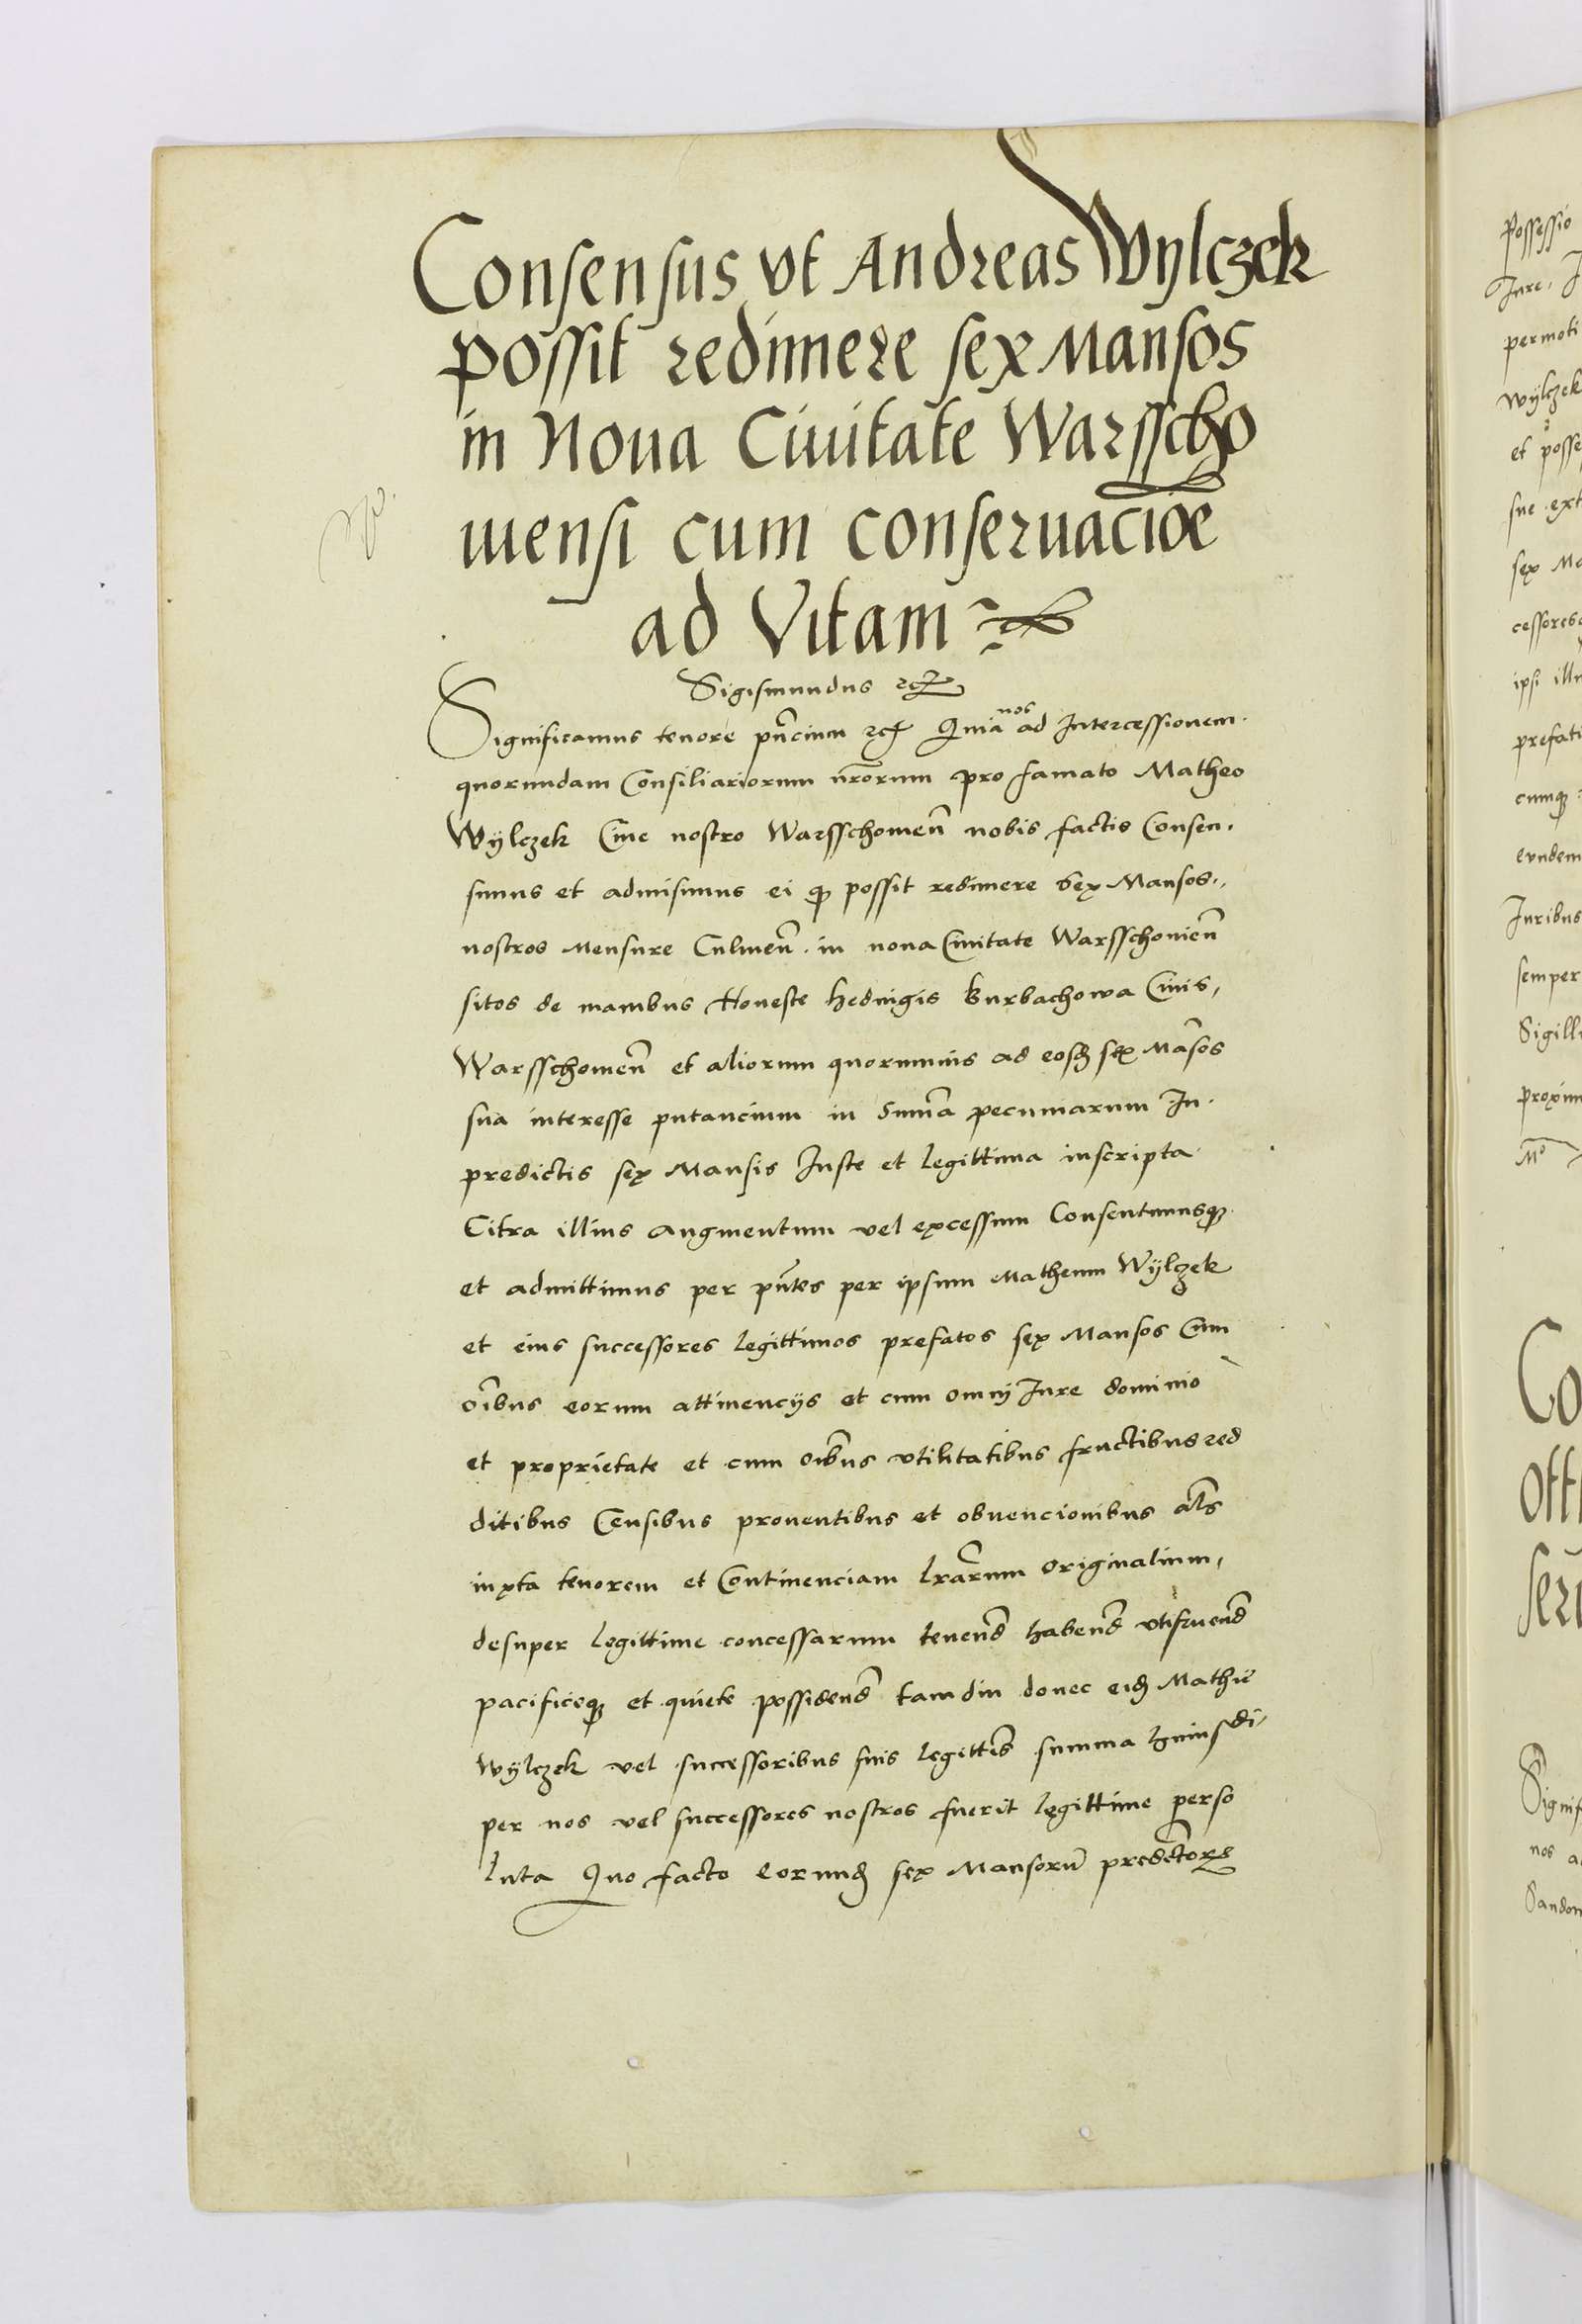 Consensus vt Andreas Wylczek
possit redimere sex Mansos
in Noua Ciuitate Warsscho
uiensi cum conseruacioē
ad Vitam
Sigismundus etc
Significamus tenore pn̄cium etc Quia nos ad Intercessionem
quorundam Consiliariorum nr̄orum pro famato Matheo
Wylczek Ciue nostro Warsschouien̄ nobis factis Consen
simus et admisimus ei qꝫ possit redimere Sex Mansos
nostros Mensure Culmen̄. in noua Ciuitate Warsschouien̄
sitos de manibus Honeste Heduigis Burbachowa Ciuis
Warsschouien̄ et aliorum quorumuis ad eosdꝫ sex Man̄sos
sua interesse putancium in Sum̄a pecuniarum In
predictis sex Mansis Iuste et legittima inscripta
Citra illius augmentum vel excessum Consentimusqꝫ
et admittimus per pn̄tes per ipsum Matheum Wylczek
et eius successores legittimos prefatos sex Mansos Cum
oībus eorum attinencijs et cum omnj Iure dominio
et proprietate et cum oībus vtilitatibus fructibus red
ditibus Censibus prouentibus et obuencionibus al̄s
iuxta tenorem et Continenciam lr̄arum originalium
desuper legittime concessarum tenend̄ habend̄ vtifruend̄
pacificeqꝫ et quiete possidend̄ tamdiu donec eidꝫ Mathie
Wylczek vel successoribus suis legittīs summa huiusdi
per nos vel successores nostros fuerit legittime perso
luta Quo facto Eorundꝫ sex Mansorū predictorꝝ
possessio
Iure. I
permoti
Wylczek
et posse
sue ext
sex Ma
cessores
ipsi illu
prefati
cumqꝫ
eundem
Iuribus
semper
Sigill
proxim
Mo
Co
ott
seru
Signif
nos a
Sandom